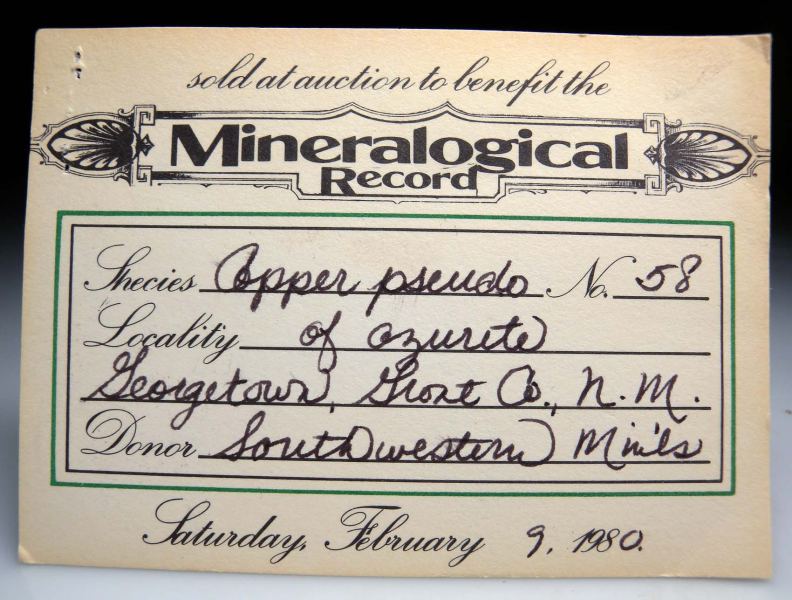 sold at auction to benefit the
Mineralogical
Record
Species Copper pseudo No. 58
Locality of azurite
Georgetown, Grant Co., N.M.
Donor Southwestern Min'ls
Saturday, February 9, 1980.